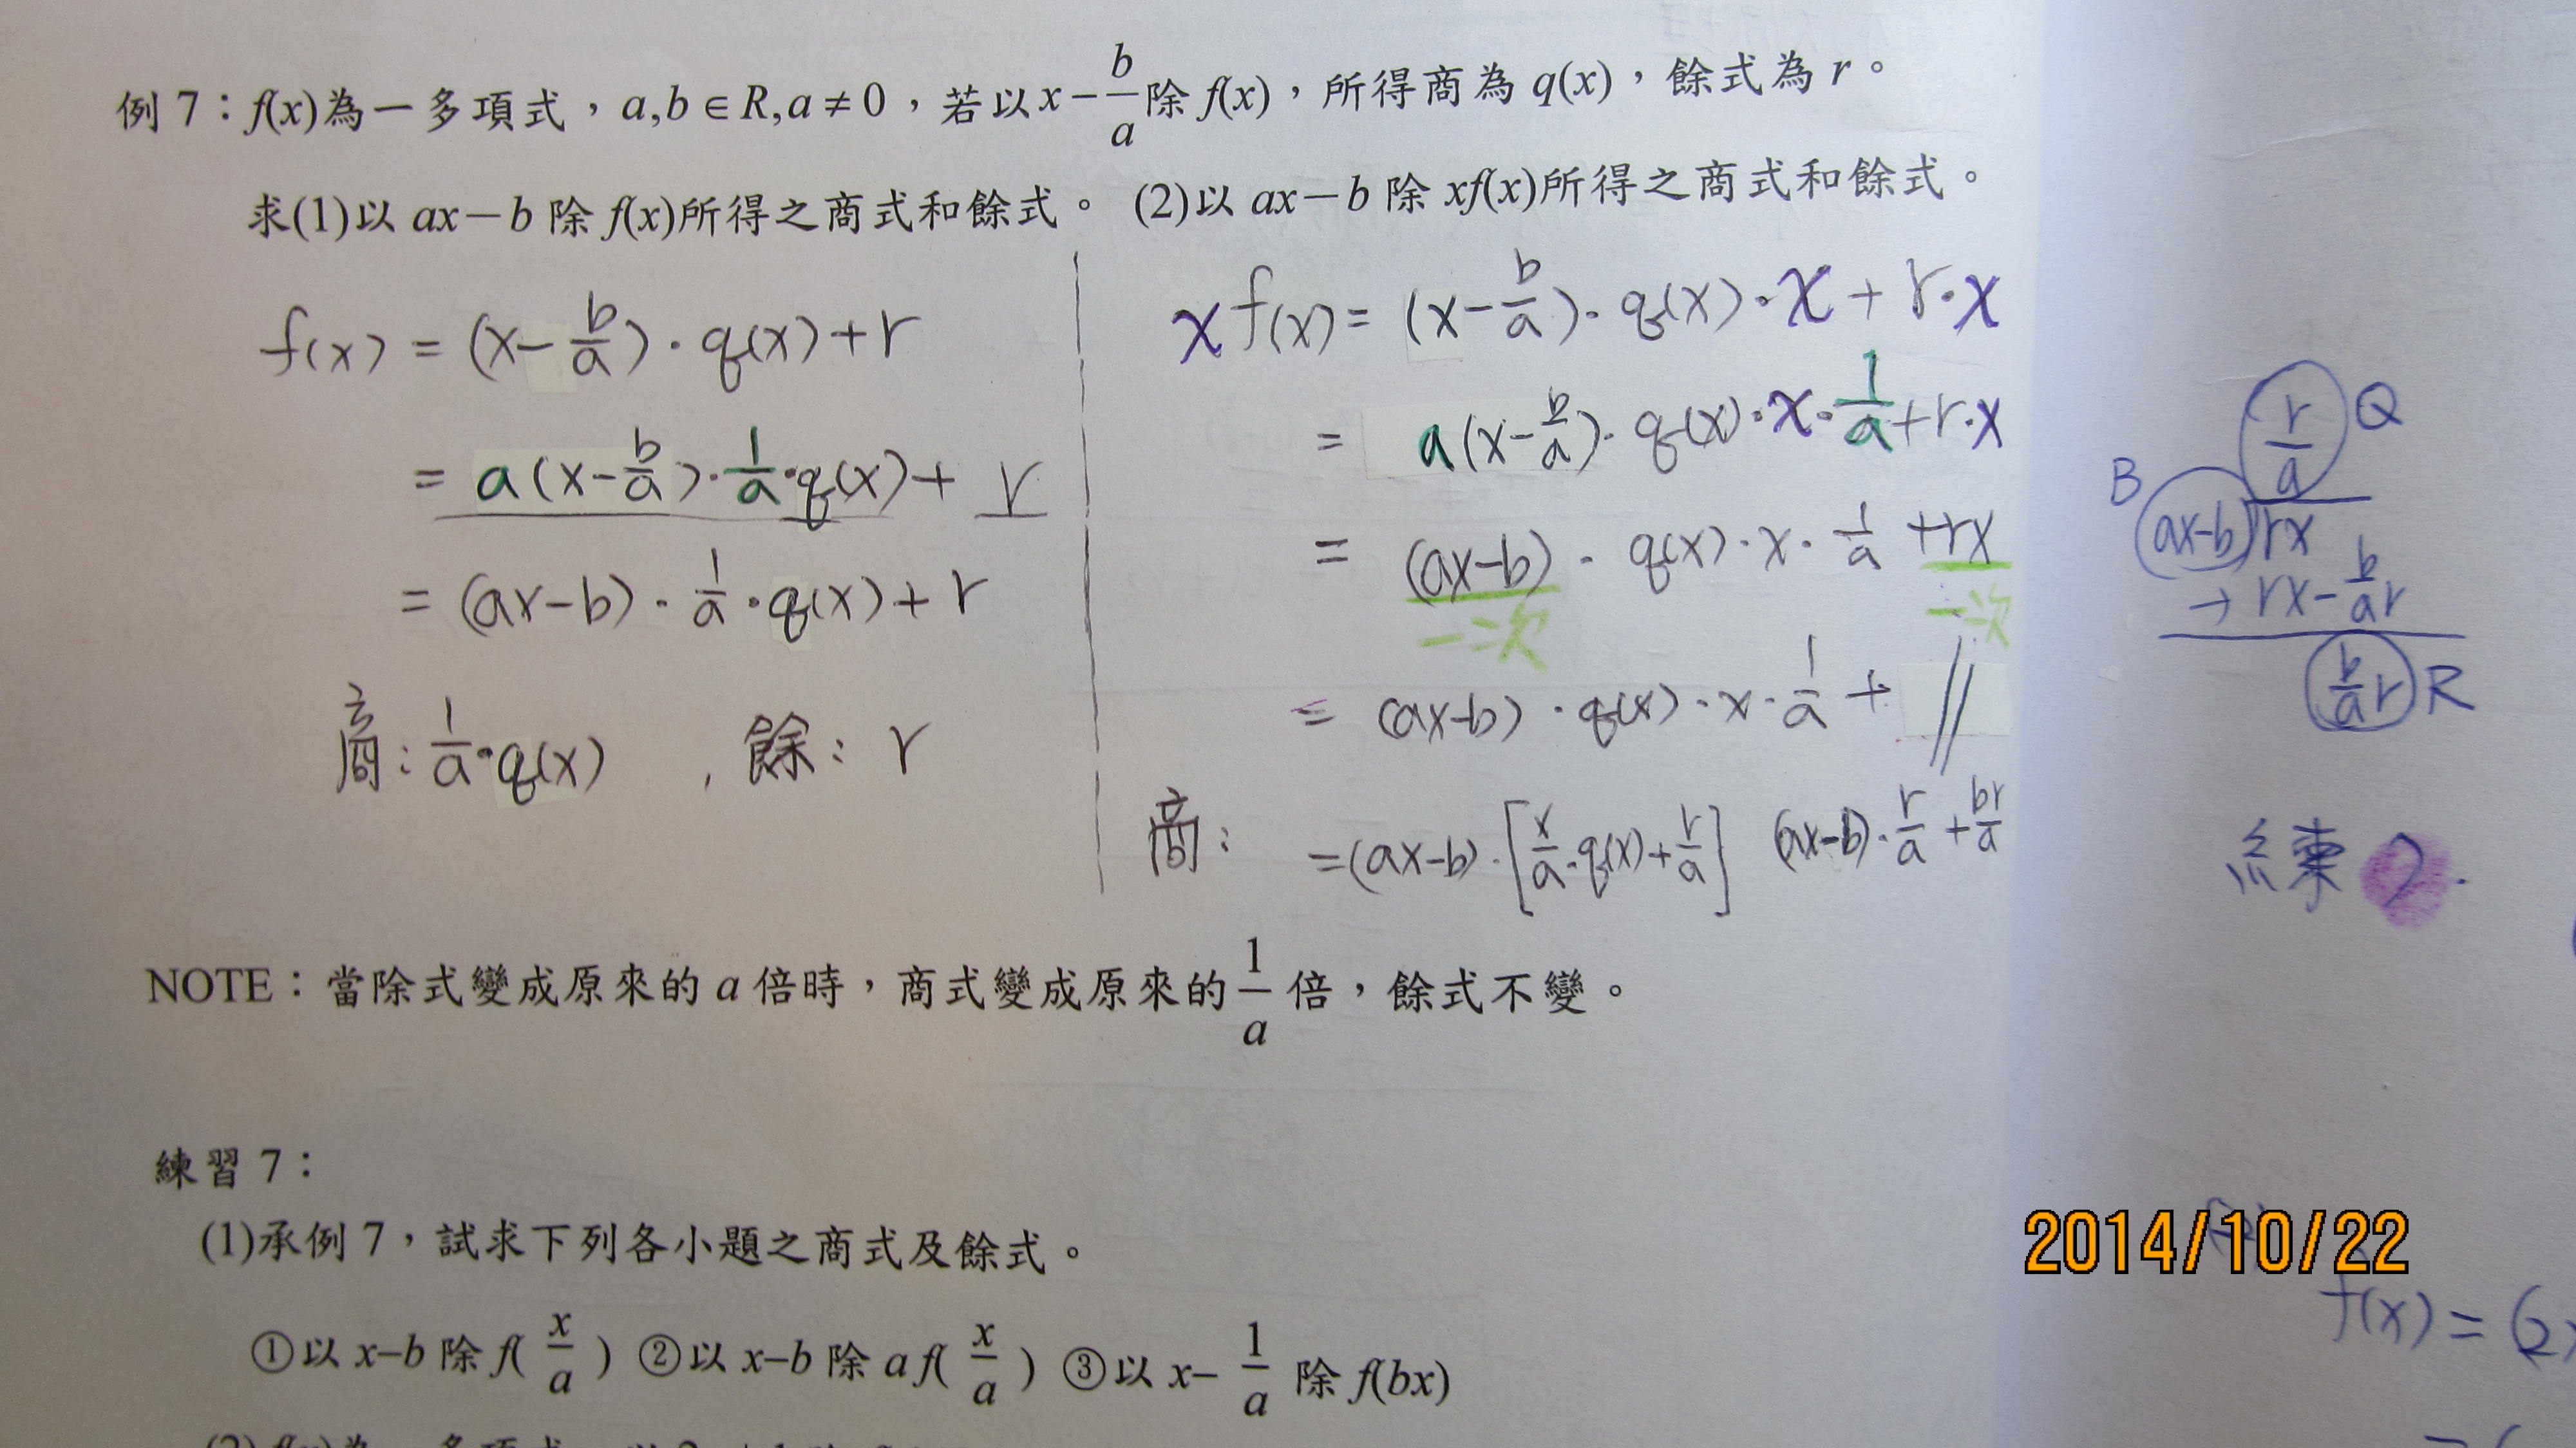 例 7：f(x)為一多項式，a,b∈R,a≠0，若以 x－b/a 除 f(x)，所得商為 q(x)，餘式為 r。
求(1)以 ax－b 除 f(x)所得之商式和餘式。 (2)以 ax－b 除 xf(x)所得之商式和餘式。
f(x) = (x-b/a)·q(x)+r
= a(x-b/a)·1/a·q(x)+ r
= (ax-b)·1/a·q(x)+r
商：1/a·q(x) ，餘：r
x f(x)= (x-b/a)·q(x)·x+r·x
= a(x-b/a)·q(x)·x·1/a+r·x
= (ax-b)·q(x)·x·1/a +rx
一次 一次
= (ax-b)·q(x)·x·1/a +
商： =(ax-b)·[x/a·q(x)+r/a] (ax-b)·r/a+br/a
r/a Q
B ax-b rx
→ rx-b/a r
b/a r R
練7.
NOTE：當除式變成原來的 a 倍時，商式變成原來的 1/a 倍，餘式不變。
練習 7：
(1)承例 7，試求下列各小題之商式及餘式。
①以 x–b 除 f( x/a ) ②以 x–b 除 a f( x/a ) ③以 x– 1/a 除 f(bx)
2014/10/22
f(x) = (2x